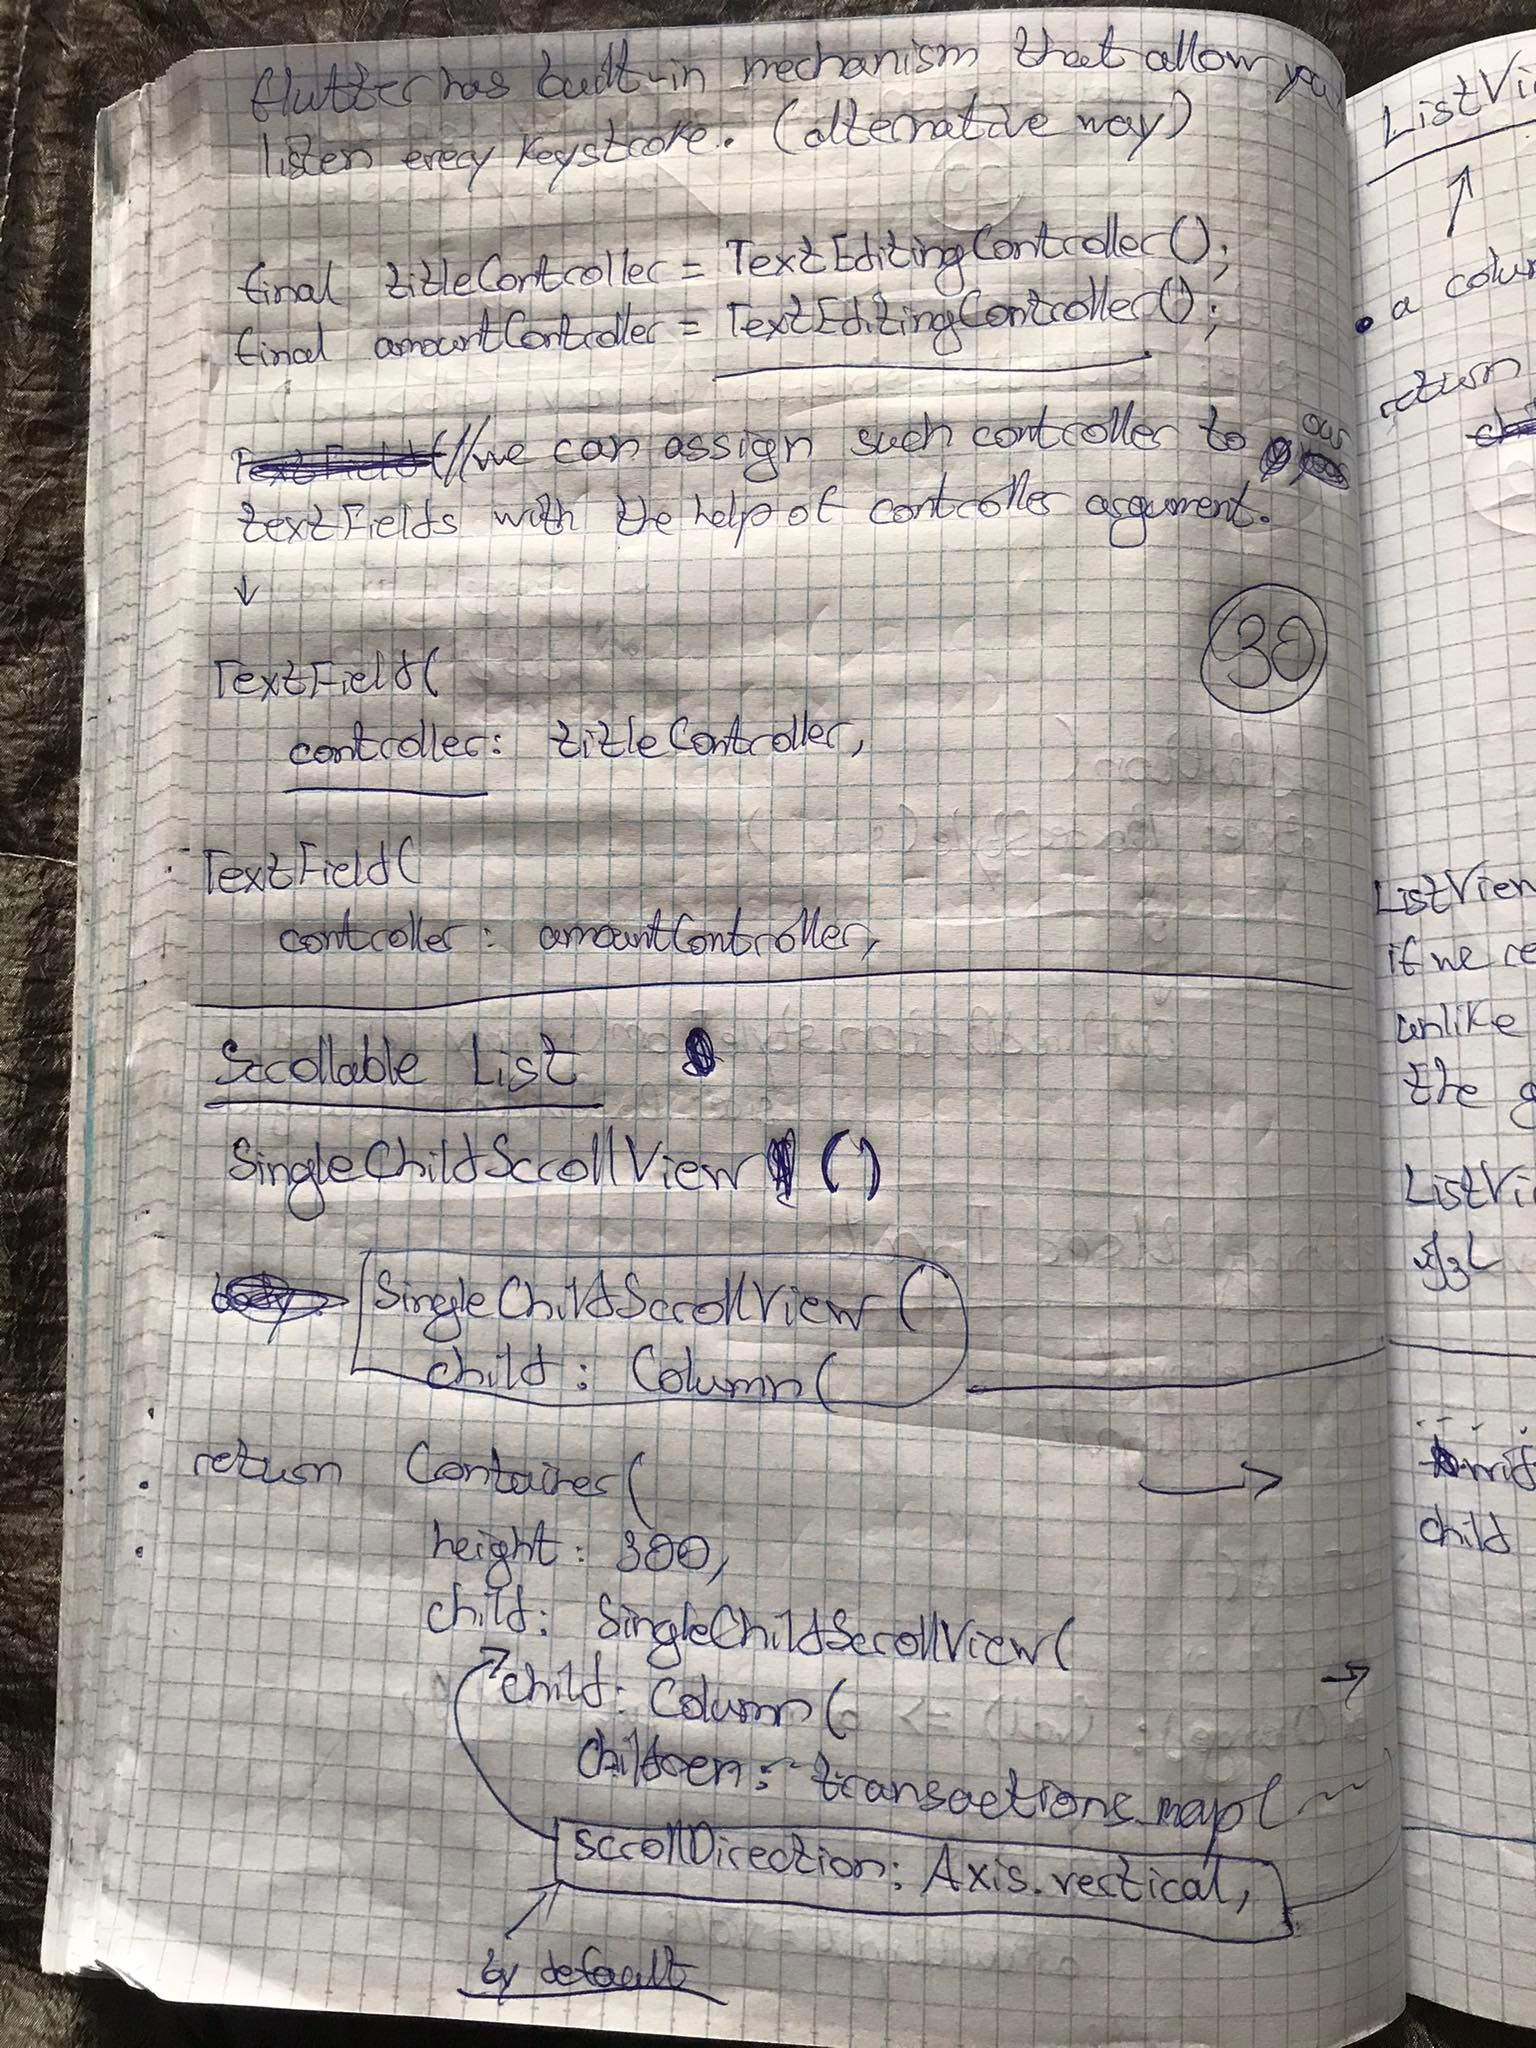 flutter has built-in mechanism that allow you
listen every keystroke. (alternative way)
final titleController = TextEditingController();
final amountController = TextEditingController();
//we can assign such controller to our
textFields with the help of controller argument.
↓
30
TextField(
controller: titleController,
TextField(
controller: amountController,
Scrollable List
SingleChildScrollView ()
SingleChildScrollView (
child: Column(
return Container(
height: 300,
child: SingleChildScrollView(
child: Column(
children: transactions.map(
scrollDirection: Axis.vertical,
by default
ListVi
a colum
return
ListView
if we
unlike
the
ListVi
child